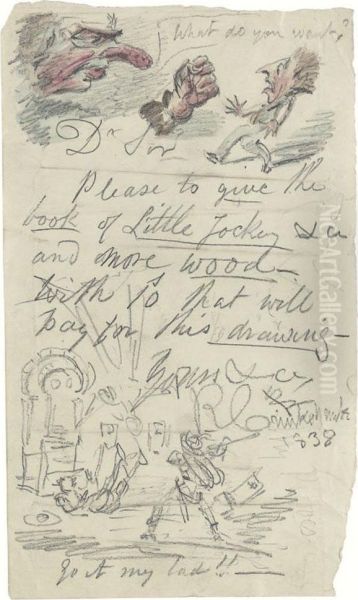 What do you want?
Dr Sir
Please to give the
book of Little Jockey &c
and more wood
with to that will
pay for this drawing
Yours &c
R Cruikshank
1838
Go it my lad!!